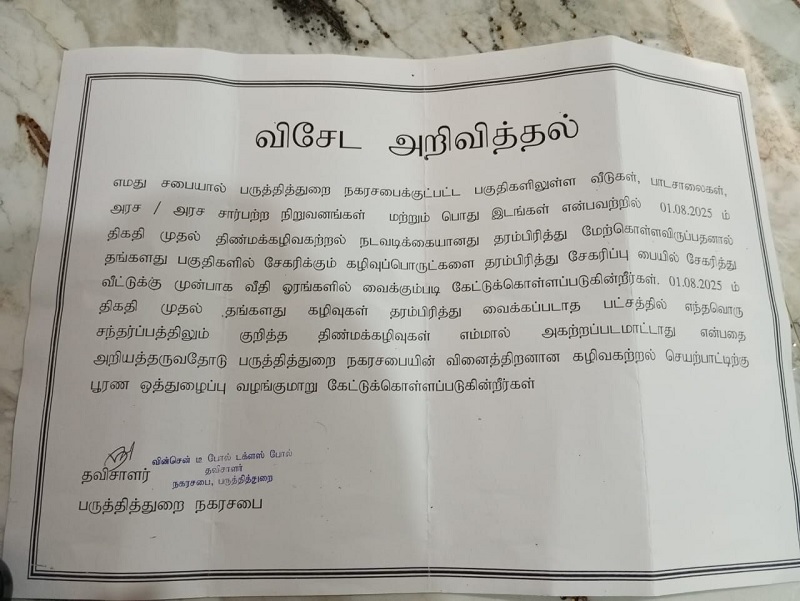 விசேட அறிவித்தல்
எமது சபையால் பருத்தித்துறை நகரசபைக்குட்பட்ட பகுதிகளிலுள்ள வீடுகள், பாடசாலைகள்,
அரச / அரச சார்பற்ற நிறுவனங்கள் மற்றும் பொது இடங்கள் என்பவற்றில் 01.08.2025 ம்
திகதி முதல் திண்மக்கழிவகற்றல் நடவடிக்கையானது தரம்பிரித்து மேற்கொள்ளவிருப்பதனால்
தங்களது பகுதிகளில் சேகரிக்கும் கழிவுப்பொருட்களை தரம்பிரித்து சேகரிப்பு பையில் சேகரித்து
வீட்டுக்கு முன்பாக வீதி ஓரங்களில் வைக்கும்படி கேட்டுக்கொள்ளப்படுகின்றீர்கள். 01.08.2025 ம்
திகதி முதல் தங்களது கழிவுகள் தரம்பிரித்து வைக்கப்படாத பட்சத்தில் எந்தவொரு
சந்தர்ப்பத்திலும் குறித்த திண்மக்கழிவுகள் எம்மால் அகற்றப்படமாட்டாது என்பதை
அறியத்தருவதோடு பருத்தித்துறை நகரசபையின் வினைத்திறனான கழிவகற்றல் செயற்பாட்டிற்கு
பூரண ஒத்துழைப்பு வழங்குமாறு கேட்டுக்கொள்ளப்படுகின்றீர்கள்
வின்சென் டீ போல் டக்ளஸ் போல்
தவிசாளர்
நகரசபை, பருத்தித்துறை
தவிசாளர்
பருத்தித்துறை நகரசபை